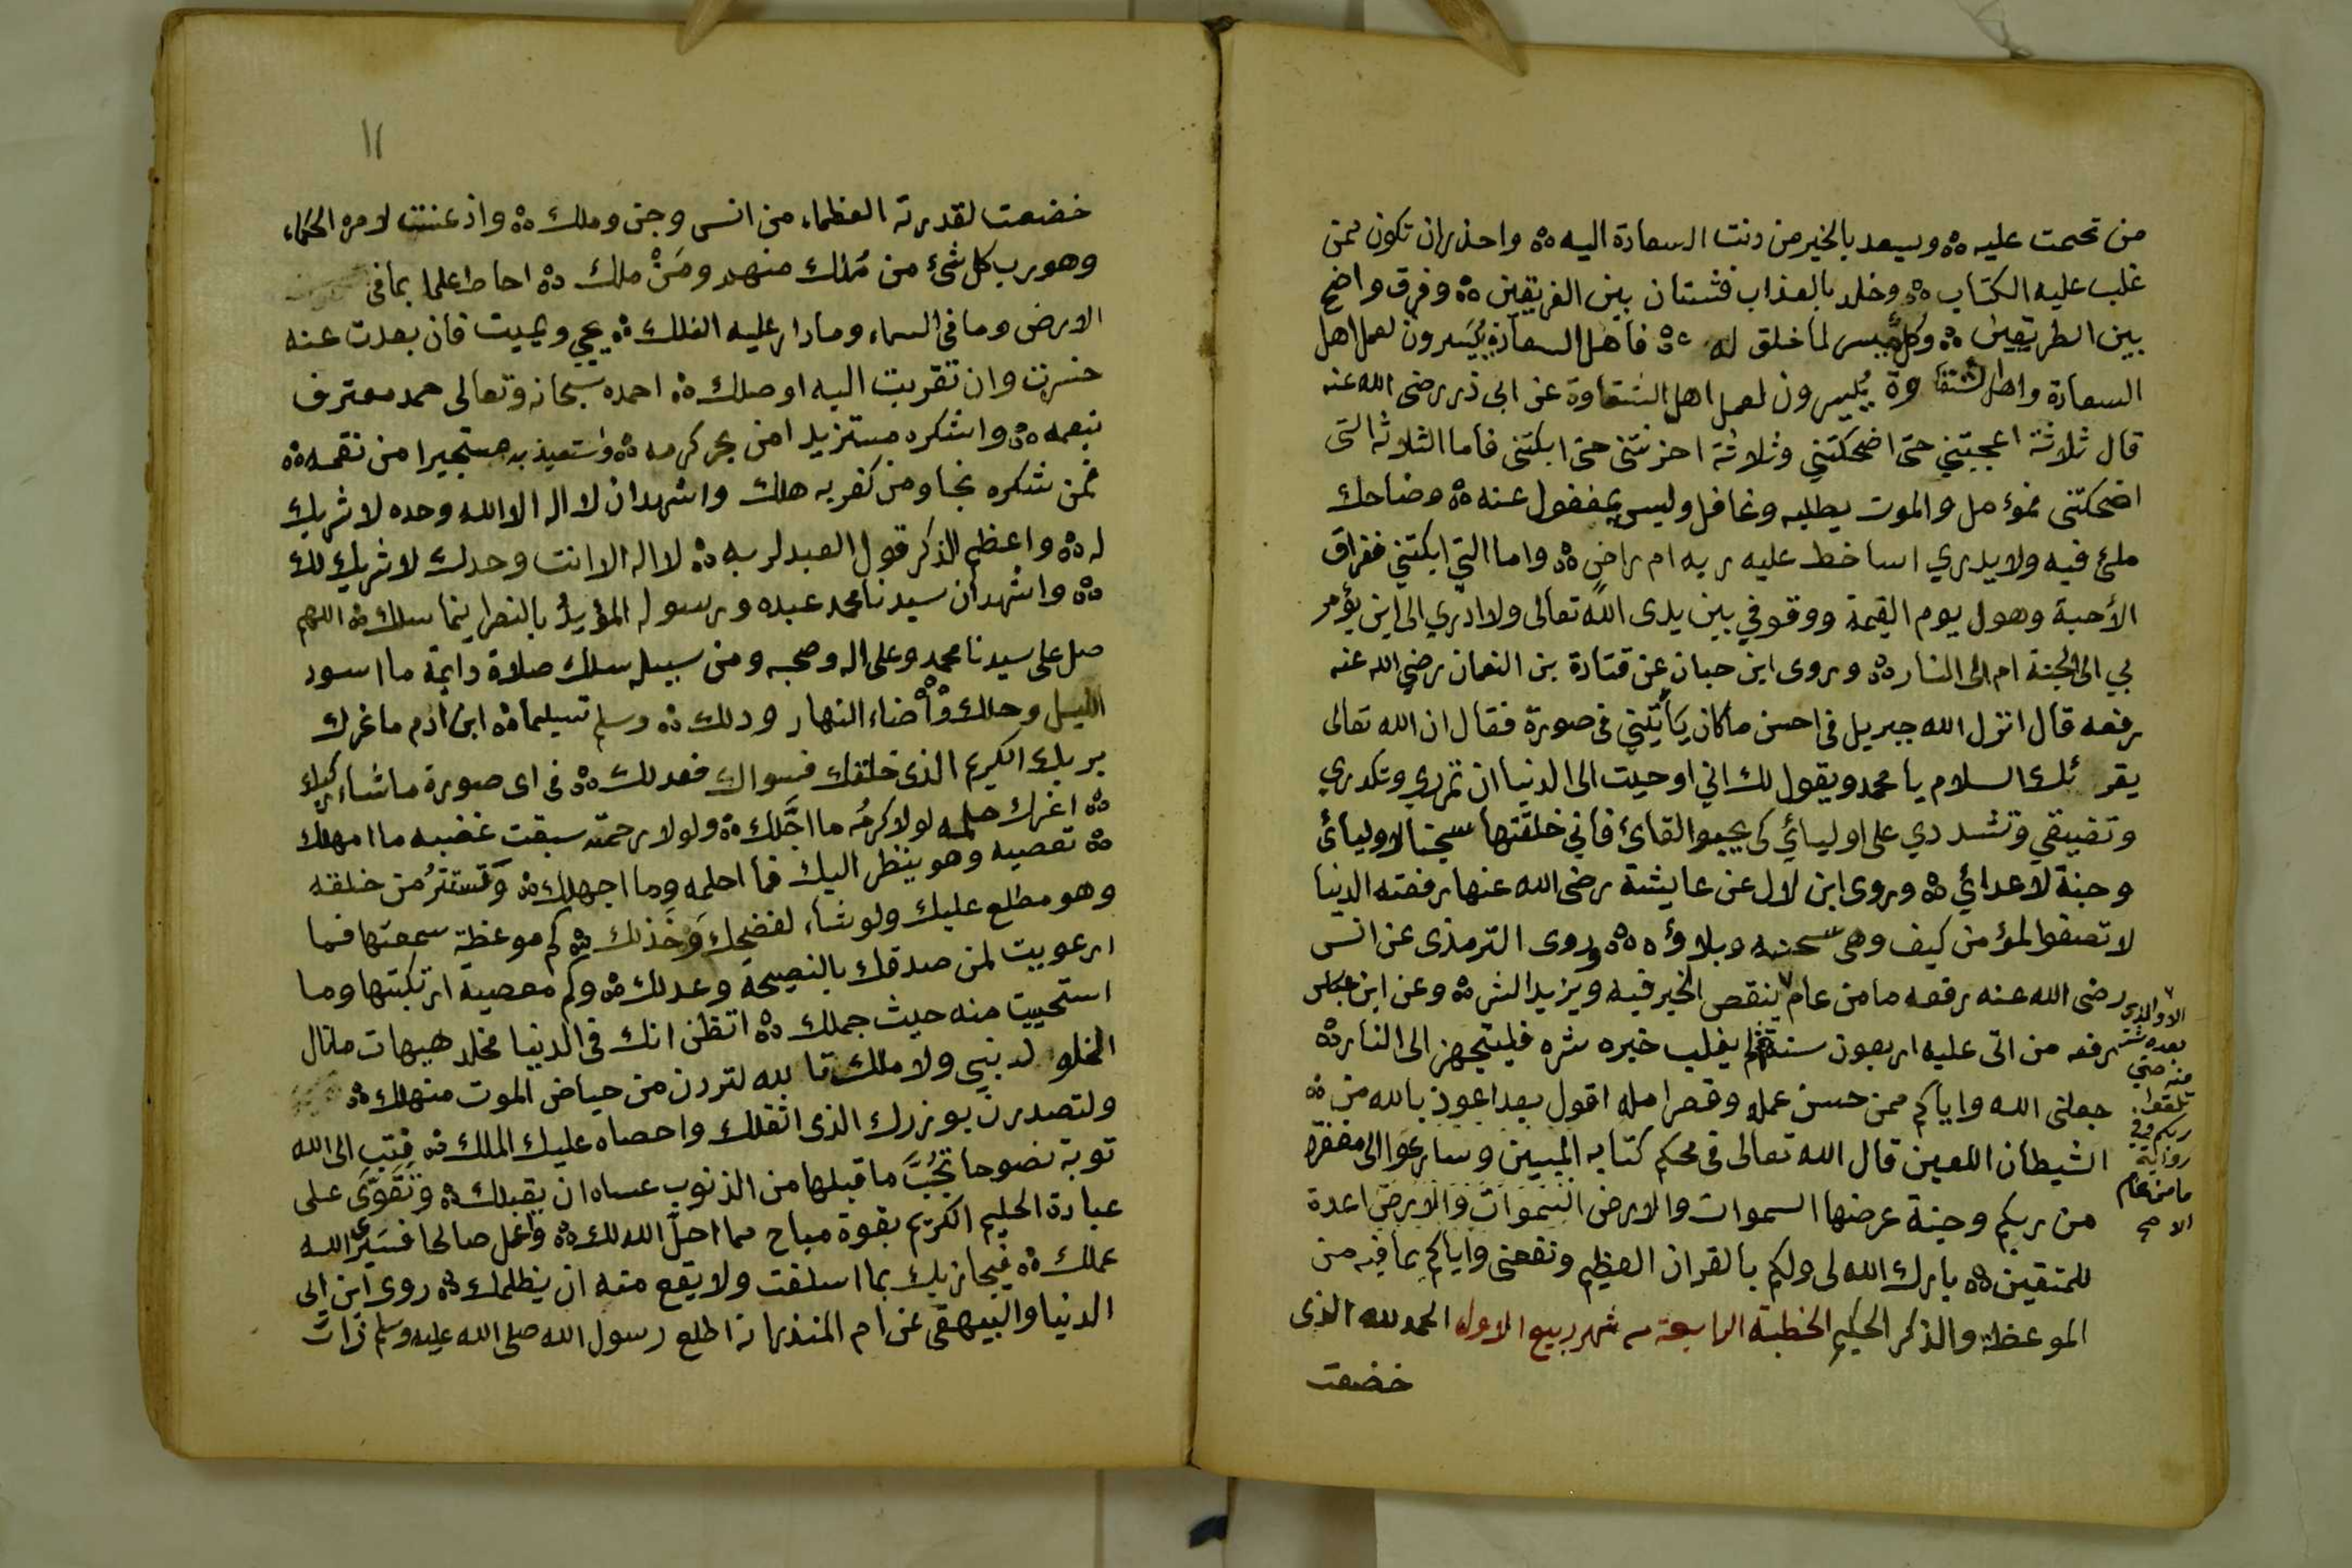 من تحتمت عليه ۵ ويسعد بالخير من دنت السعادة اليه ۵ واحذر ان تكون ممن
غلب عليه الكتاب ۵ وخلد بالعذاب فشتان بين الفريقين ۵ وفرق واضح
بين الطريقين ۵ وكل ميسر لما خلق له ۵ فاهل السعادة ييسرون لعمل اهل
السعادة واهل الشقاوة ييسرون لعمل اهل الشقاوة عن ابى ذر رضى الله عنه
قال ثلاثة اعجبتني حتى اضحكتني وثلاثة احزنتنى حتى ابكتنى فاما الثلاثة التى
اضحكتنى فمؤمل والموت يطلبه وغافل وليس بمغفول عنه ۵ وضاحك
ملئ فيه ولا يدري اساخط عليه ربه ام راض ۵ واما التي ابكتني ففراق
الأحبة وهول يوم القيمة ووقوفي بين يدى الله تعالى ولا ادري الى اين يؤمر
بي الى الجنة ام الى النار ۵ وروى ابن حبان عن قتادة بن النعمان رضي الله عنه
رفعه قال انزل الله جبريل فى احسن ما كان يأتيني فى صورة فقال ان الله تعالى
يقرئك السلام يا محمد ويقول لك اني اوحيت الى الدنيا ان تمرري وتكدري
وتضيقي وتشددي على اوليائي كى يحبوا لقائ فاني خلقتها سجنا لاوليائ
وجنة لاعدائي ۵ وروى ابن لال عن عايشة رضى الله عنها رفعته الدنيا
لا تصفوا لمؤمن كيف وهى سجنه وبلاؤه ۵ وروى الترمذى عن انس
رضى الله عنه رفعه ما من عام ينقص الخير فيه ويزيد الشر ۵ وعن ابن عباس
رفعه من اتى عليه اربعون سنة فلم يغلب خيره شره فليتجهز الى النار ۵
جعلنى الله واياكم ممن حسن عمله وقصر امله اقول بعد اعوذ بالله من
الشيطان اللعين قال الله تعالى فى محكم كتابه المبين وسارعوا الى مغفرة
من ربكم وجنة عرضها السموات والارض السموات والارض اعدة
للمتقين ۵ بارك الله لى ولكم بالقران العظيم ونفعنى واياكم بما فيه من
الموعظة والذكر الحكيم الخطبة الرابعة من شهر ربيع الاول الحمد لله الذى
خضعت
الا والذى
بعده شر
منه حتى
تلقوا
ربكم وفي
رواية
ما من عام
الا صح
١١
خضعت لقدرته العظماء من انس وجن وملك ۵ واذعنت لامره الحكماء
وهو رب كل شئ من مُلك منهم ومَنْ ملك ۵ احاط علما بما فى
الارض وما فى السماء وما دار عليه الفلك ۵ يحي ويميت فان بعدت عنه
خسرت وان تقربت اليه اوصلك ۵ احمده سبحانه وتعالى حمد معترف
بنعمه ۵ واشكره مستزيدا من بحر كرمه ۵ واستعيذ به مستجيرا من نقمه ۵
فمن شكره نجا ومن كفر به هلك واشهد ان لا اله الا الله وحده لا شريك
له ۵ واعظم الذكر قول العبد لربه ۵ لا اله الا انت وحدك لا شريك لك
۵ واشهد ان سيدنا محمد عبده ورسوله المؤيد بالنصر اينما سلك ۵ اللهم
صل على سيدنا محمد وعلى اله وصحبه ومن سبيله سلك صلاة دايمة ما اسود
الليل وحلك ۵ وأضاء النهار ودلك ۵ وسلم تسليما ۵ ابن أدم ما غرك
بربك الكريم الذى خلقك فسواك فعدلك ۵ فى اى صورة ما شاء ركبك
۵ اغرك حلمه لولا كرمُه ما اجَّلك ۵ ولولا رحمته سبقت غضبه ما امهلك
۵ تعصيه وهو ينظر اليك فما احلمه وما اجهلك ۵ وَتستترُ من خلقه
وهو مطلع عليك ولو شاء لفضحك وَخذلك ۵ كم موعظة سمعتها فما
ارعويت لمن صدقك بالنصيحة وعدلك ۵ وكم معصية ارتكبتها وما
استحييت منه حيث جملك ۵ اتظن انك فى الدنيا مخلد هيهات ما نال
الخلو لد نبي ولا ملك تا لله لتردن من حياض الموت منهلك ۵
ولتصدرن بوزرك الذى اثقلك واحصاه عليك الملك ۵ فتب الى الله
توبة نصوحا تَجُبُّ ما قبلها من الذنوب عساه ان يقبلك ۵ وَتَقَوَّى على
عبادة الحليم الكريم بقوة مباح مما احلَّ الله لك ۵ واعمل صالحا فسَيرى الله
عملك ۵ فيجازيك بما اسلفت ولا يقع منه ان يظلمك ۵ روى ابن ابى
الدنيا والبيهقى عن ام المنذر انه اطلع رسول الله صلى الله عليه وسلم ذات